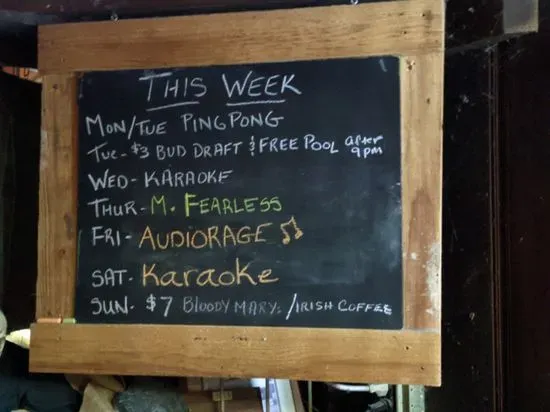 THIS WEEK
MON/TUE PING PONG
TUE- $3 BUD DRAFT & FREE POOL after 9pm
WED- KARAOKE
THUR- M. FEARLESS
FRI- AUDIORAGE
SAT- Karaoke
SUN- $7 BLOODY MARY: /IRISH COFFEE